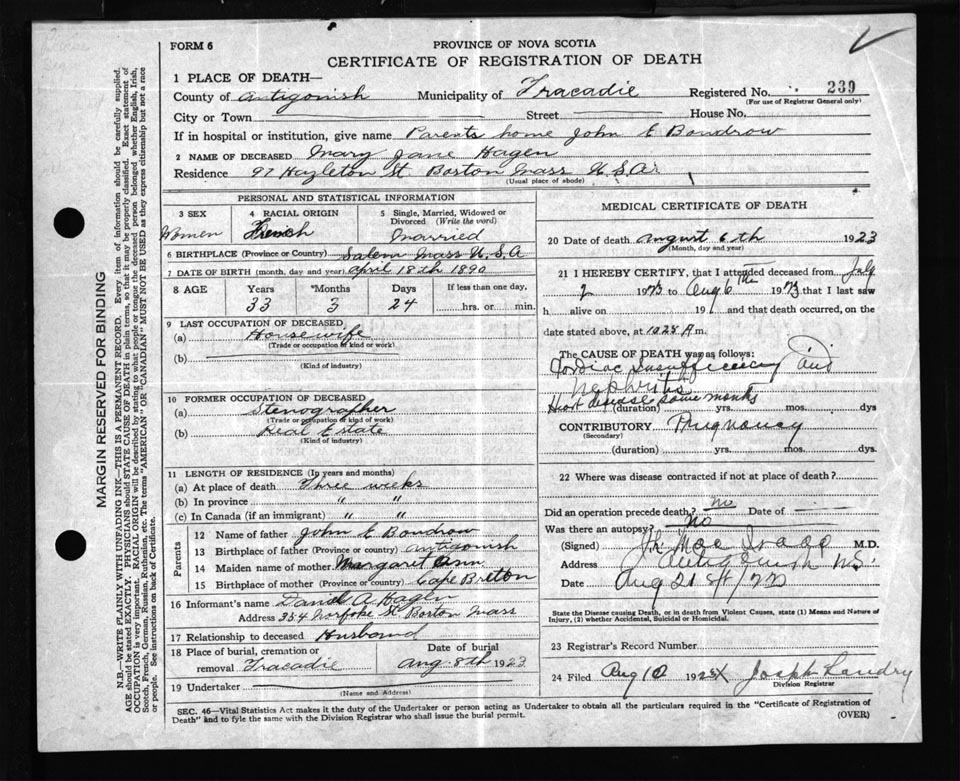 FORM 6
PROVINCE OF NOVA SCOTIA
CERTIFICATE OF REGISTRATION OF DEATH
1 PLACE OF DEATH—
County of Antigonish Municipality of Tracadie Registered No. 239
(For use of Registrar General only)
City or Town Street House No.
If in hospital or institution, give name Parents home John E Boudrow
2 NAME OF DECEASED Mary Jane Hagen
Residence 97 Hazleton St Boston Mass U.S.A.
(Usual place of abode)
PERSONAL AND STATISTICAL INFORMATION
3 SEX 4 RACIAL ORIGIN 5 Single, Married, Widowed or Divorced (Write the word)
Women French Married
6 BIRTHPLACE (Province or Country) Salem Mass U.S.A
7 DATE OF BIRTH (month, day and year) April 18th 1890
8 AGE Years *Months Days If less than one day,
33 3 24 hrs. or min.
9 LAST OCCUPATION OF DECEASED
(a) Housewife
(Trade or occupation of kind or work)
(b)
(Kind of industry)
10 FORMER OCCUPATION OF DECEASED
(a) Stenographer
(Trade or occupation of kind or work)
(b) Real Estate
(Kind of industry)
11 LENGTH OF RESIDENCE (In years and months)
(a) At place of death Three weeks
(b) In province " "
(c) In Canada (if an immigrant) " "
Parents
12 Name of father John E Boudrow
13 Birthplace of father (Province or country) Antigonish
14 Maiden name of mother Margaret Ann
15 Birthplace of mother (Province or country) Cape Britton
16 Informant's name Daniel A Hagen
Address 354 St Boston Mass
17 Relationship to deceased Husband
18 Place of burial, cremation or removal Tracadie Date of burial Aug. 8th 1923
19 Undertaker
(Name and Address)
MEDICAL CERTIFICATE OF DEATH
20 Date of death August 6th 1923
(Month, day and year)
21 I HEREBY CERTIFY, that I attended deceased from July
2 1923 to Aug 6th 1923 that I last saw
h alive on 191 and that death occurred, on the
date stated above, at 10.25 A m.
The CAUSE OF DEATH was as follows:
Cardiac Insufficiency and
Nephritis
Heart disease some months
(duration) yrs. mos. dys
CONTRIBUTORY Pregnancy
(Secondary)
(duration) yrs. mos. dys.
22 Where was disease contracted if not at place of death?
Did an operation precede death? no Date of
Was there an autopsy? No
(Signed) M.D.
Address Antigonish N.S.
Date Aug 21 st/23
State the Disease causing Death, or in death from Violent Causes, state (1) Means and Nature of Injury, (2) whether Accidental, Suicidal or Homicidal.
23 Registrar's Record Number
24 Filed Aug 10 192 Joseph Landry
Division Registrar
SEC. 46—Vital Statistics Act makes it the duty of the Undertaker or person acting as Undertaker to obtain all the particulars required in the "Certificate of Registration of
Death" and to fyle the same with the Division Registrar who shall issue the burial permit.
(OVER)
MARGIN RESERVED FOR BINDING
N.B.—WRITE PLAINLY WITH UNFADING INK—THIS IS A PERMANENT RECORD. Every item of information should be carefully supplied.
AGE should be stated EXACTLY. PHYSICIANS should STATE CAUSE OF DEATH in plain terms, so that it may be properly classified. Exact statement of
OCCUPATION is very important. RACIAL ORIGIN will be described by stating to what people or tongue the deceased person belonged whether English, Irish,
Scotch, French, German, Russian, Ruthenian, etc. The terms "AMERICAN" or "CANADIAN" MUST NOT BE USED as they express citizenship but not a race
or people. See instructions on back of Certificate.